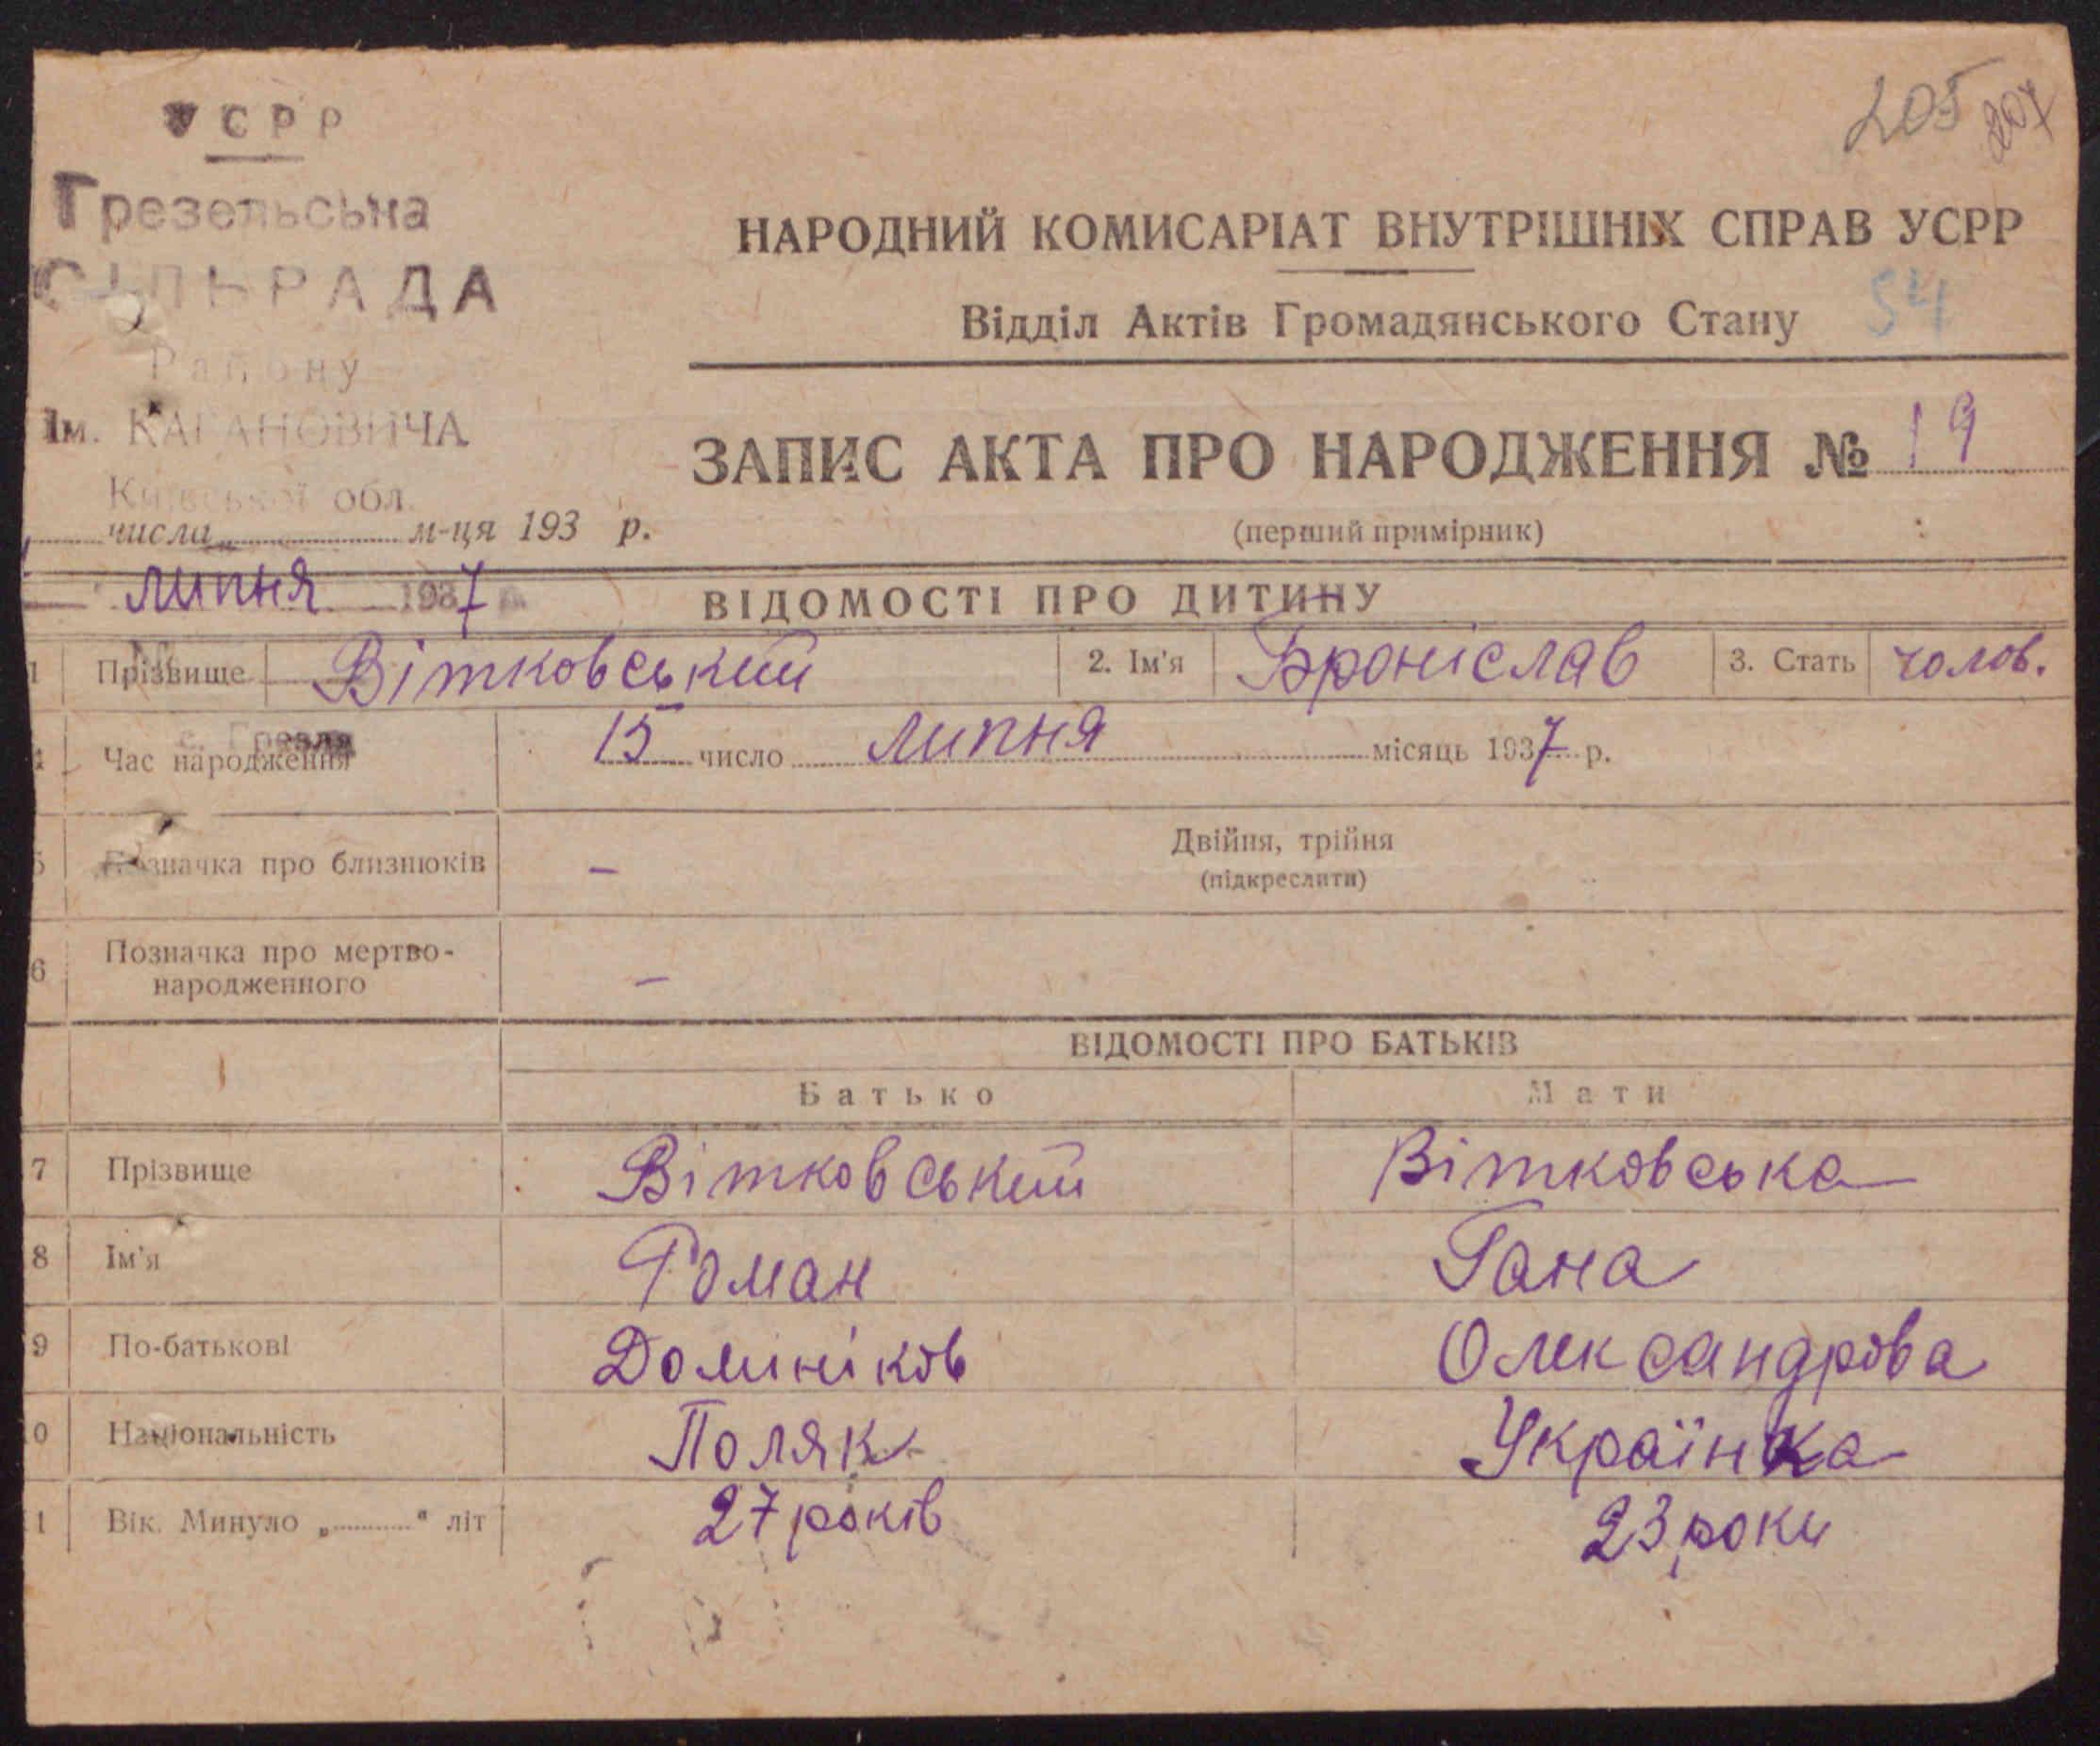 УСРР
Грезельська
СІЛЬРАДА
Району
Ім. КАГАНОВИЧА
Київської обл.
числа м-ця 193 р.
липня 1937
с. Грезля
205 207
НАРОДНИЙ КОМИСАРІАТ ВНУТРІШНІХ СПРАВ УСРР
Відділ Актів Громадянського Стану 54
ЗАПИС АКТА ПРО НАРОДЖЕННЯ № 19
(перший примірник)
ВІДОМОСТІ ПРО ДИТИНУ
1 Прізвище Вітковський 2. Ім'я Броніслав 3. Стать чолов.
4 Час народження 15 число липня місяць 1937 р.
5 Позначка про близнюків – Двійня, трійня
(підкреслити)
6 Позначка про мертво-
народженного –
ВІДОМОСТІ ПРО БАТЬКІВ
Батько Мати
7 Прізвище Вітковський Вітковська
8 Ім'я Роман Гана
9 По-батькові Домініков Олександрова
0 Національність Поляк Українка
1 Вік. Минуло „ “ літ 27 років 23 роки